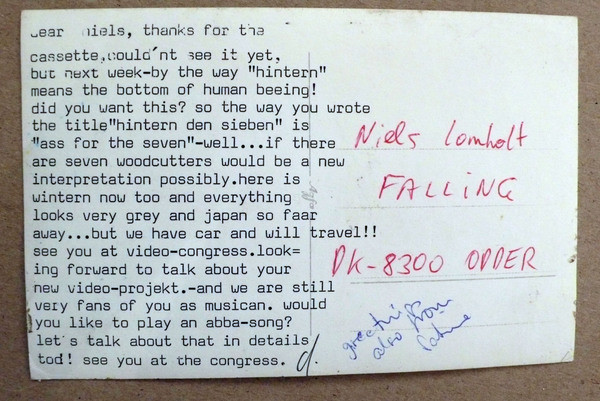 dear niels, thanks for the
cassette,could'nt see it yet,
but next week-by the way "hintern"
means the bottom of human beeing!
did you want this? so the way you wrote
the title"hintern den sieben" is
"ass for the seven"-well...if there
are seven woodcutters would be a new
interpretation possibly.here is
wintern now too and everything
looks very grey and japan so faar
away...but we have car and will travel!!
see you at video-congress.look=
ing forward to talk about your
new video-projekt.-and we are still
very fans of you as musican. would
you like to play an abba-song?
let's talk about that in details
tod! see you at the congress.
Niels Lomholt
FALLING
DK-8300 ODDER
greetings
also from